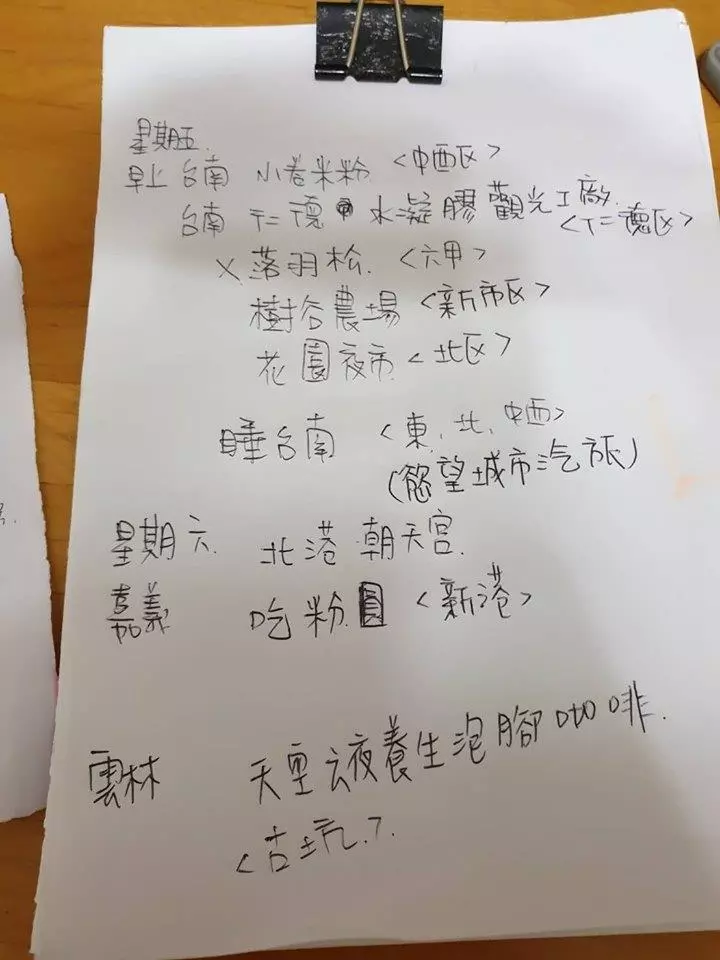 星期五.
早上 台南 小卷米粉 <中西区>
台南 仁德 水凝膠觀光工廠. <仁德区>
X 落羽松. <六甲>
樹谷農場 <新市区>
花園夜市 <北区>
睡台南 <東、北、中西>
(慾望城市汽旅)
星期六 北港 朝天宮.
嘉義 吃粉圓 <新港>
雲林 天 夜養生泡腳咖啡.
<古坑.>.